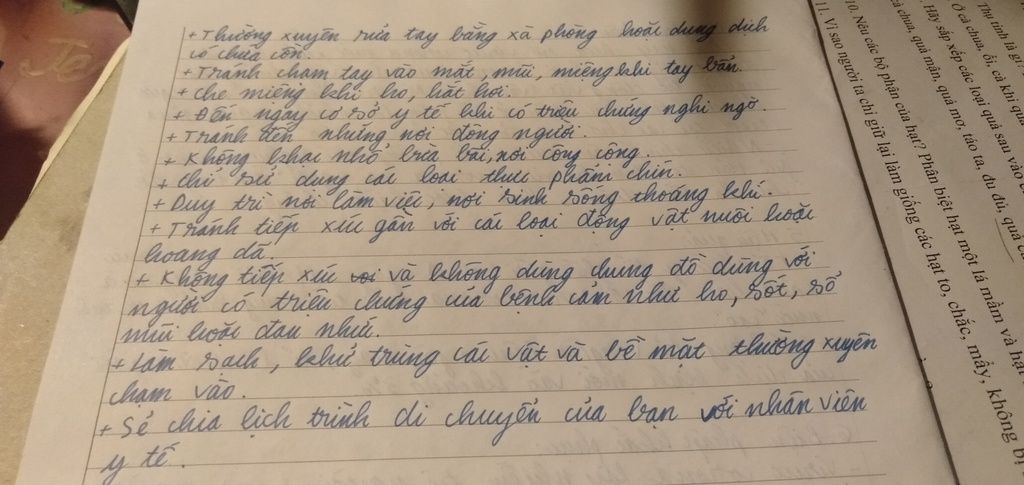 + Thường xuyên rửa tay bằng xà phòng hoặc dung dịch
có chứa cồn.
+ Tránh chạm tay vào mắt, mũi, miệng khi tay bẩn.
+ Che miệng khi ho, hắt hơi.
+ Đến ngay cơ sở y tế khi có triệu chứng nghi ngờ
+ Tránh đến những nơi đông người.
+ Không khạc nhổ bừa bãi, nơi công cộng.
+ Chỉ sử dụng các loại thực phẩm chín.
+ Duy trì nơi làm việc, nơi sinh sống thoáng khí.
+ Tránh tiếp xúc gần với các loại động vật nuôi hoặc
hoang dã.
+ Không tiếp xúc và không dùng chung đồ dùng với
người có triệu chứng của bệnh cảm như ho, sốt, sổ
mũi hoặc đau nhức.
+ Làm sạch, khử trùng các vật và bề mặt thường xuyên
chạm vào.
+ Sẻ chia lịch trình di chuyển của bạn với nhân viên
y tế.
Thụ tinh là gì?
Hãy sắp xếp các loại quả sau vào
cà chua, quả mận, quả mơ, táo ta, đu đủ, quả
10. Nêu các bộ phận của hạt? Phân biệt hạt một lá mầm và hạt
11. Vì sao người ta chỉ giữ lại làm giống các hạt to, chắc, mẩy, không bị